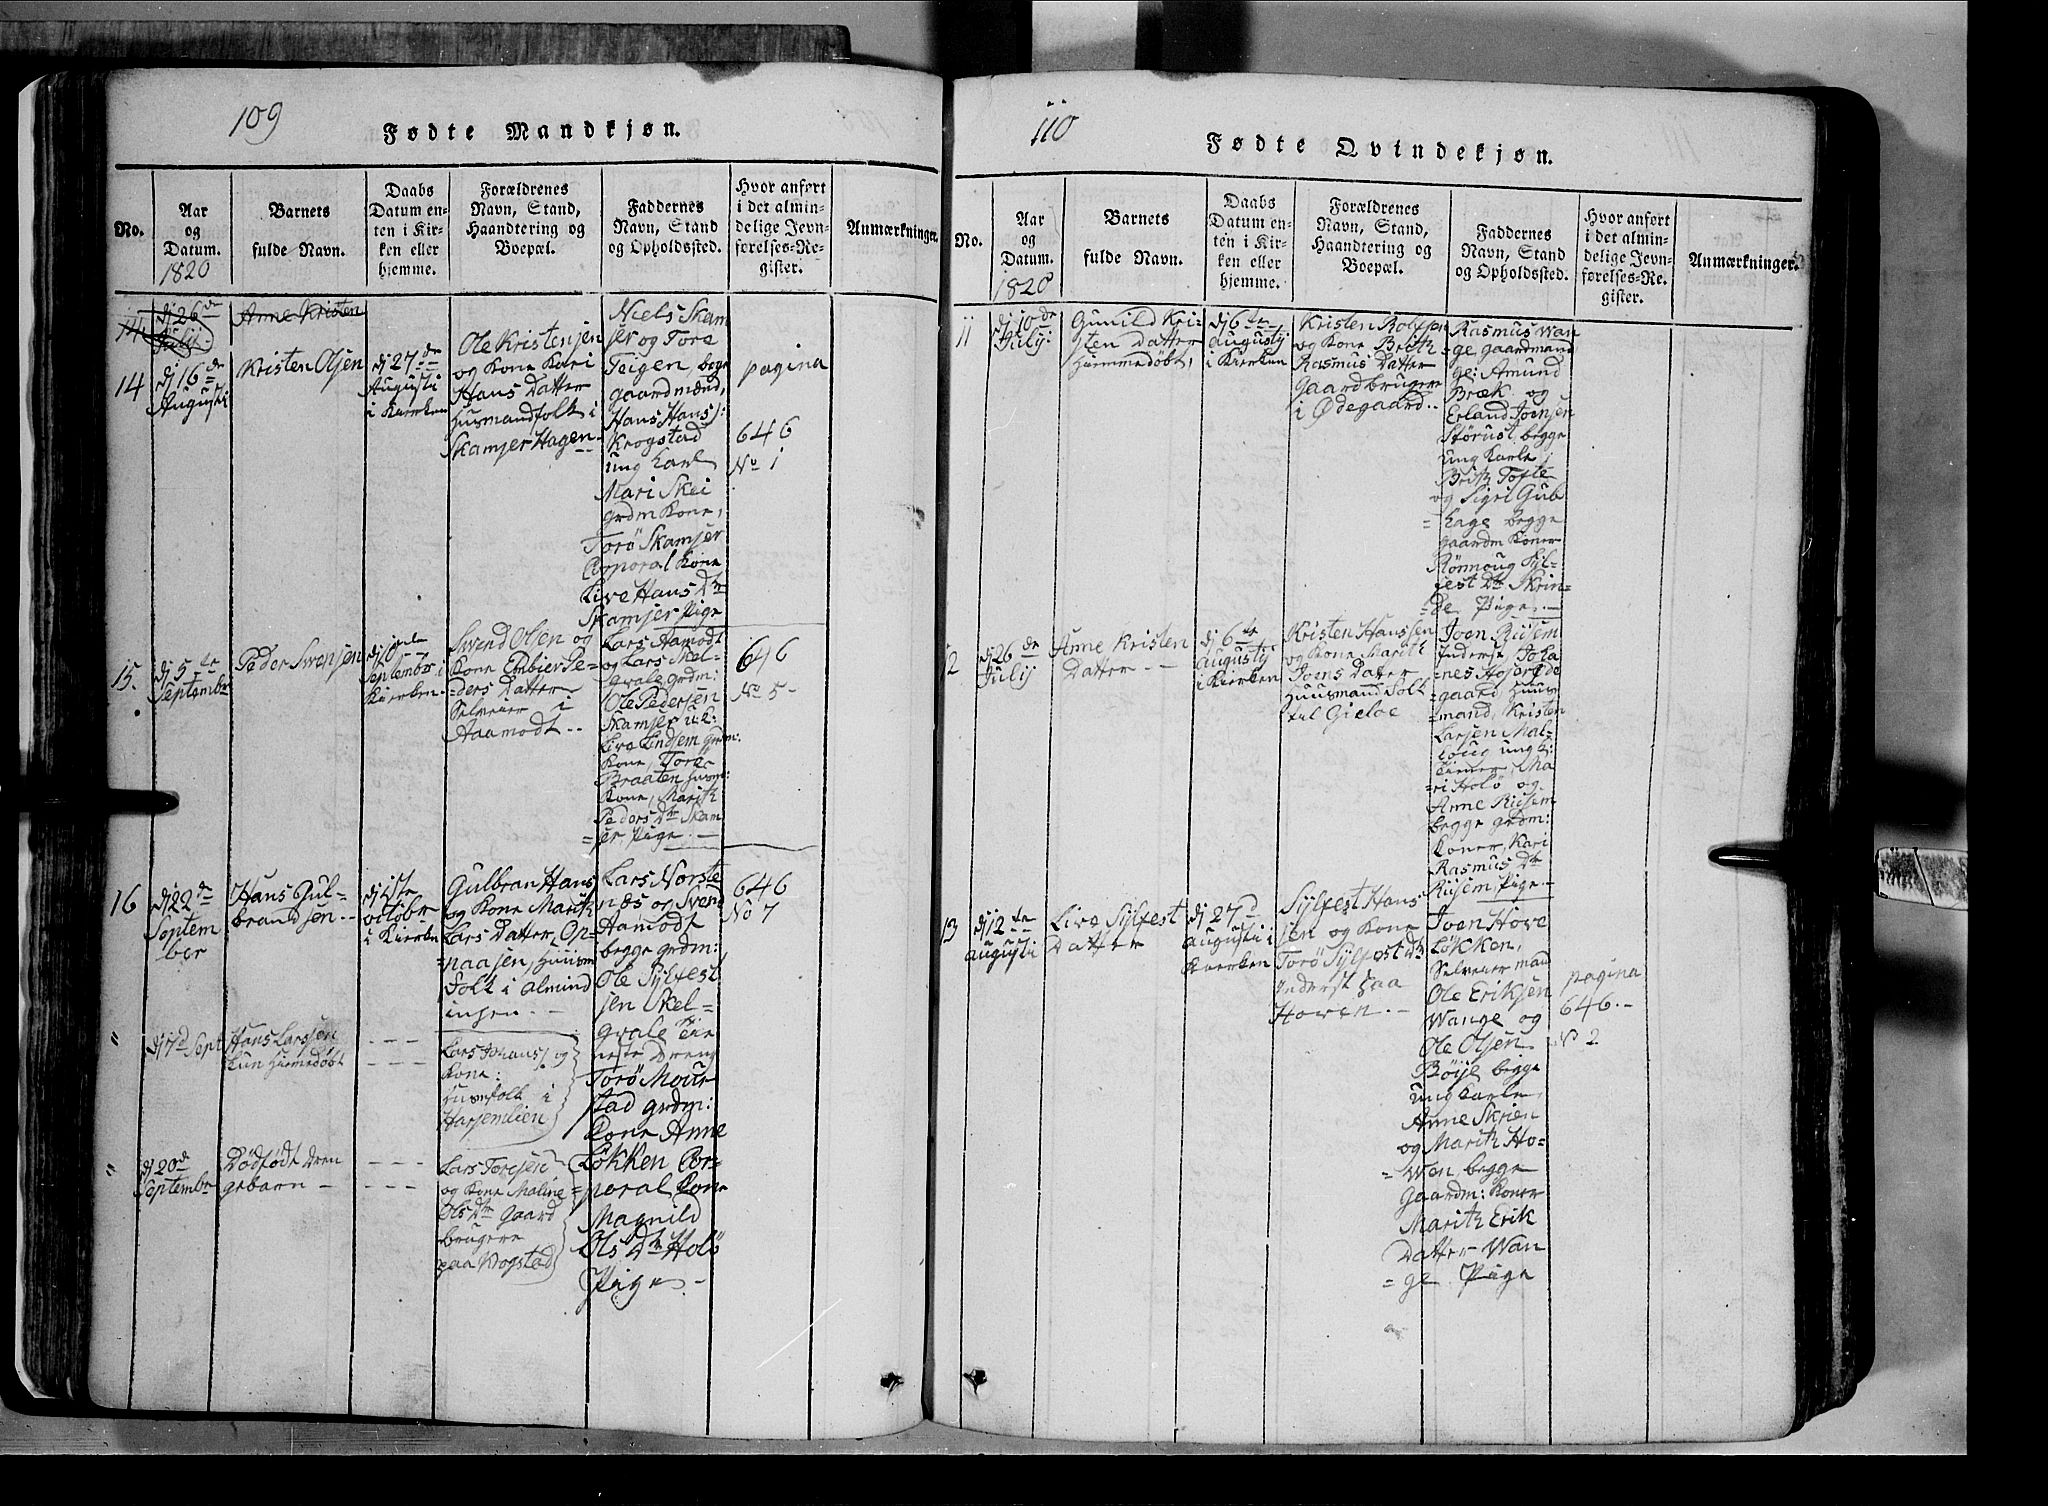 109
Fødte Mandkjøn.
No.
Aar
og
Datum.
1820
Barnets
fulde Navn.
Daabs
Datum en-
ten i Kir-
ken eller
hjemme.
Forældrenes
Navn, Stand,
Haandtering og
Boepæl.
Faddernes
Navn, Stand
og Opholdssted.
Hvor anført
i det almin-
delige Jevn-
førelses-Re-
gister.
Anmærkninger.
14
dj 26de
Julij
Anne Kristen
14
dj 16de
Augusti
Kristen Olsen
dj 27de
Augusti
i Kierken
Ole Kristensen
og Kone Kari
Hans Datter
Husmandfolk i
Skamser Hagen
Niels Skam
ser og Tore
Teigen, begge
gaardmænd,
Hans Hans):
Krogstad
ung Karl
Mari Skei
grdm Kone,
Torø Skamser
Corporal Kone
Live Hans Dtr
Skamser Pige
pagina
646
No 1
15.
dj 5te
Septembr
Peder Svensen
dj 10de
Septembr i
Kierken
Svend Olsen og
Kone Embier Pe-
=ders Datter
Selveier i
Aamodt
Lars Aamodt
og Lars Skel-
gvale grdm:
Ole Pedersen
Skamser u.k:
Live Lindsem grdm:
Kone, Tore
Braaten husm:
Kone, Marith
Peders Dtr Skam
=ser, Pige. —
646
No 5 -
16
dj 22de
Septem
ber
Hans Gul-
brandsen
dj 1ste
octobr
i Kierken
Gulbran Hans
og Kone Marith
Lars Datter, Op-
=naasen, Huusm
Folk i Almind
ingen. -
Lars Norste
næs og Svend
Aamodt
begge grdm:
Ole Sylfest
sen Skel-
gvale tie
neste Dreng
Torø Mour
stad grdm:
Kone Anne
Løkken Cor-
poral Kone
Magnild
Ols Dtr Holø
Pige -
646
No 7
"
dj 17d Sept
Hans Larssen
kun Hiemedøbt
- - -
- - -
Lars Johans) og
Kone:
Husmfolk i
Harsemlien
"
dj 20d
Septembr
Dødfødt Dren
gebarn -
- - -
- - -
Lars Toresen
og Kone Maline
Ols Dtr Gaard
brugere
paa Krogstad
110
Fødte Qvindekjøn.
No.
Aar
og
Datum.
1820
Barnets
fulde Navn.
Daabs
Datum en-
ten i Kir-
ken eller
hjemme.
Forældrenes
Navn, Stand,
Haandtering og
Boepæl.
Faddernes
Navn, Stand
og Opholdssted.
Hvor anført
i det almin-
delige Jevn-
førelses-Re-
gister.
Anmærkninger.
11
dj 10de
Julij:
Gunild Kri-
sten Datter
Hiemmedøbt,
dj 6te
Augustj
i Kierken
Kristen Rolfsen
og Kone Brith
Rasmus Datter
Gaardbrugere
i Ødegaard..
Rasmus Wan
=ge gaardmand
Amund
Bræk og
Erland Joensen
Størust, begge
ung Karle,
Brith Tofte
og Sigri Gub
=hage begge
gaardm Koner
Rønnoug Sil-
fest Dtr Skrin-
=de, Pige. —
12
dj 26de
Julij
Anne Kristen
Datter - -
dj 6te
Augustj
i Kierken
Kristen Hanssen
og Kone Marith
Joens Datter
Huusmand Folk
tul Gieloe
Joen Riisem
Inderst, Joha
=nes
=gaard Huus
mand, Kristen
Larsen Mal-
=oug ung k:
tiener, Ma
=ri Holø og
Anne Riisem
begge grdm:
Koner, Kari
Rasmus Dtr
Riisem, Pige. -
13
dj 12te
Augusti
Live Sylfest
Datter
dj 27d
Augusti i
Kierken
Sylfest Hans
sen og Kone
Torø Sylfest Dtr
Inderst paa
Hoven. -
Joen Hove
Løkken,
Selveier mand
Ole Eriksen
Wange og
Ole Olsen
Bøije begge
ung Karle,
Anne Skrien
og Marith Ho-
=wen, begge
Gaardm: Koner
Marith Erik
Datter Wan
=ge Pige
pagina
646. -
No 2